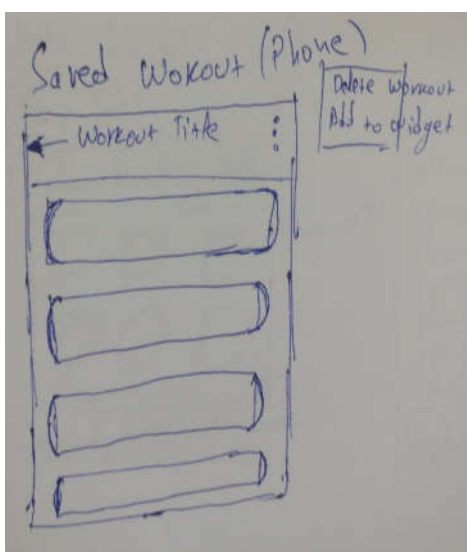 Saved Wokout (Phone)
Delete Workout
Add to widget
Workout Title